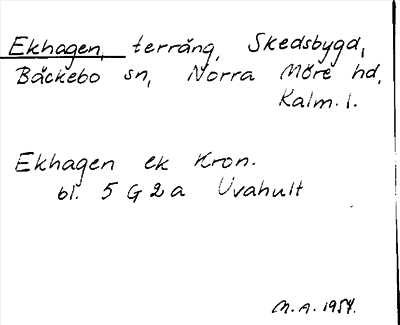 Ekhagen, terräng, Skedsbygd,
Bäckebo sn, Norra Möre hd,
Kalm. l.
Ekhagen ek Kron.
bl. 5 G 2 a Uvahult
M.A. 1954.